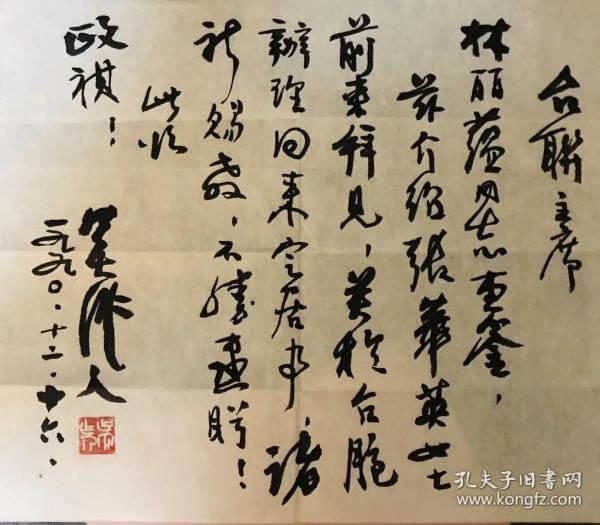 台联主席
林丽蕴同志惠鉴，
兹介绍张华英女士
前来拜见，其于台胞
办理回来定居事，诸
祈赐教，不胜感盼！
此颂
政祺！
吴作人
一九九〇·十二·十六·
孔夫子旧书网
www.kongfz.com